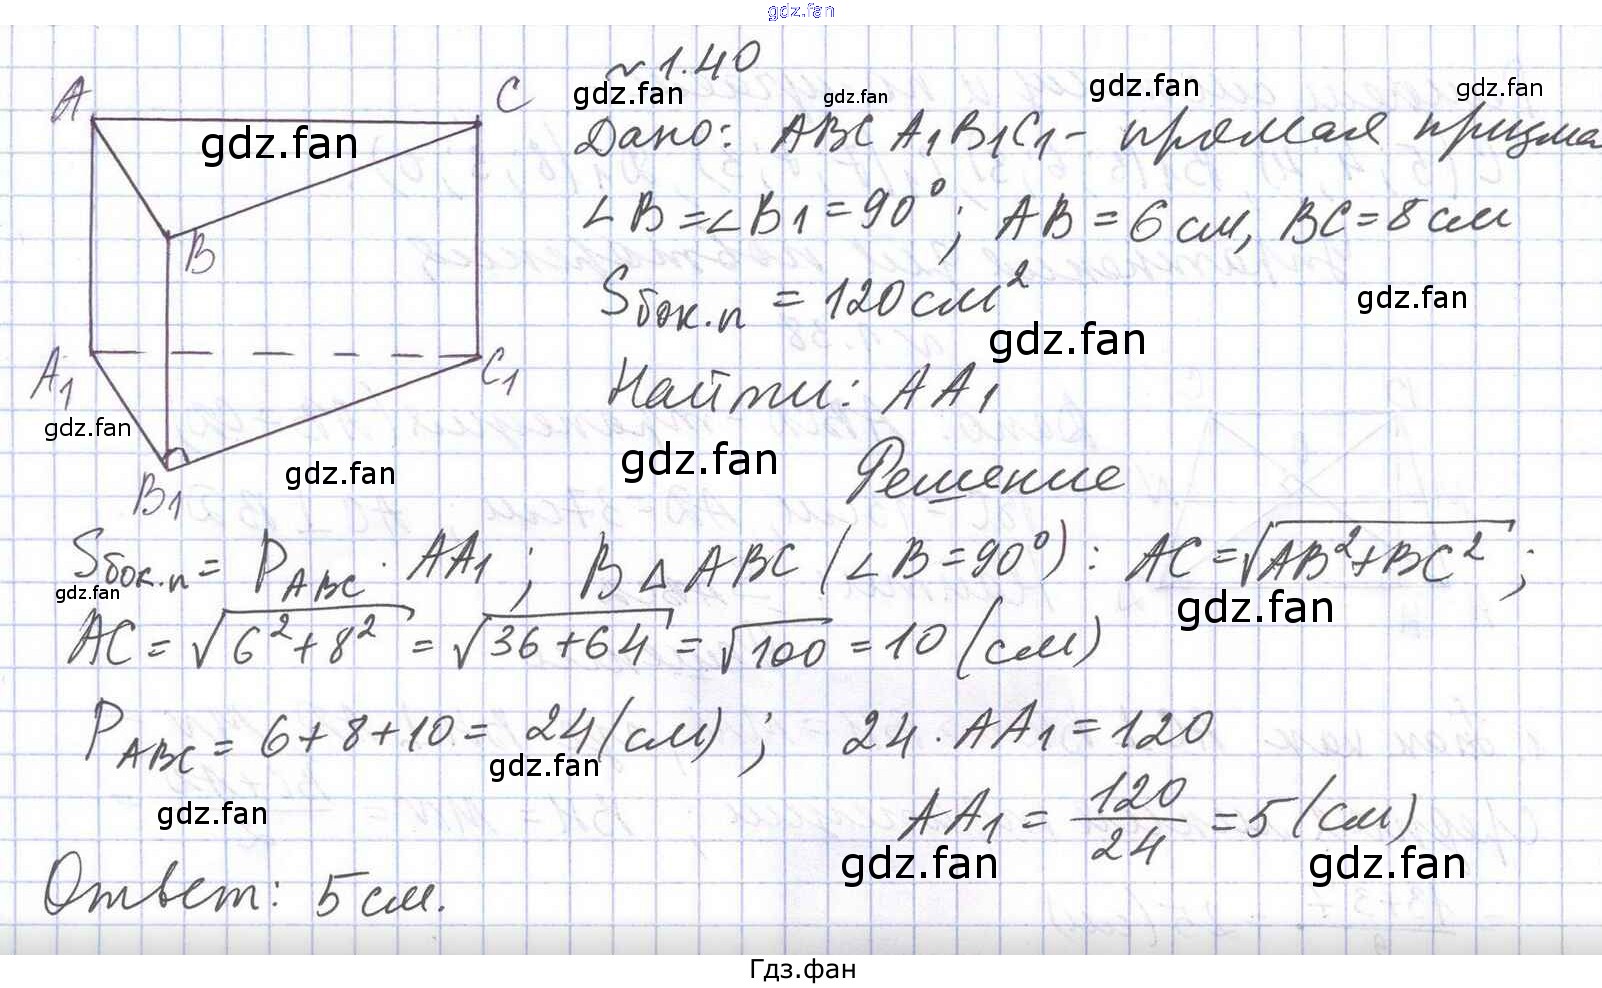 gdz.fan
№ 1.40
gdz.fan gdz.fan gdz.fan gdz.fan
A C
gdz.fan
Дано: ABCA₁B₁C₁ - прямая призма
∠B = ∠B₁ = 90°; AB = 6 см, BC = 8 см
B
Sбок.п = 120 см²
gdz.fan
gdz.fan
A₁ C₁
Найти: AA₁
gdz.fan
gdz.fan gdz.fan
Решение
B₁
Sбок.п = P_ABC · AA₁; В △ABC (∠B = 90°): AC = √(AB² + BC²);
gdz.fan gdz.fan
AC = √(6² + 8²) = √(36 + 64) = √100 = 10 (см)
P_ABC = 6 + 8 + 10 = 24 (см); 24 · AA₁ = 120
gdz.fan
gdz.fan
AA₁ = 120/24 = 5 (см)
gdz.fan gdz.fan
Ответ: 5 см.
Гдз.фан